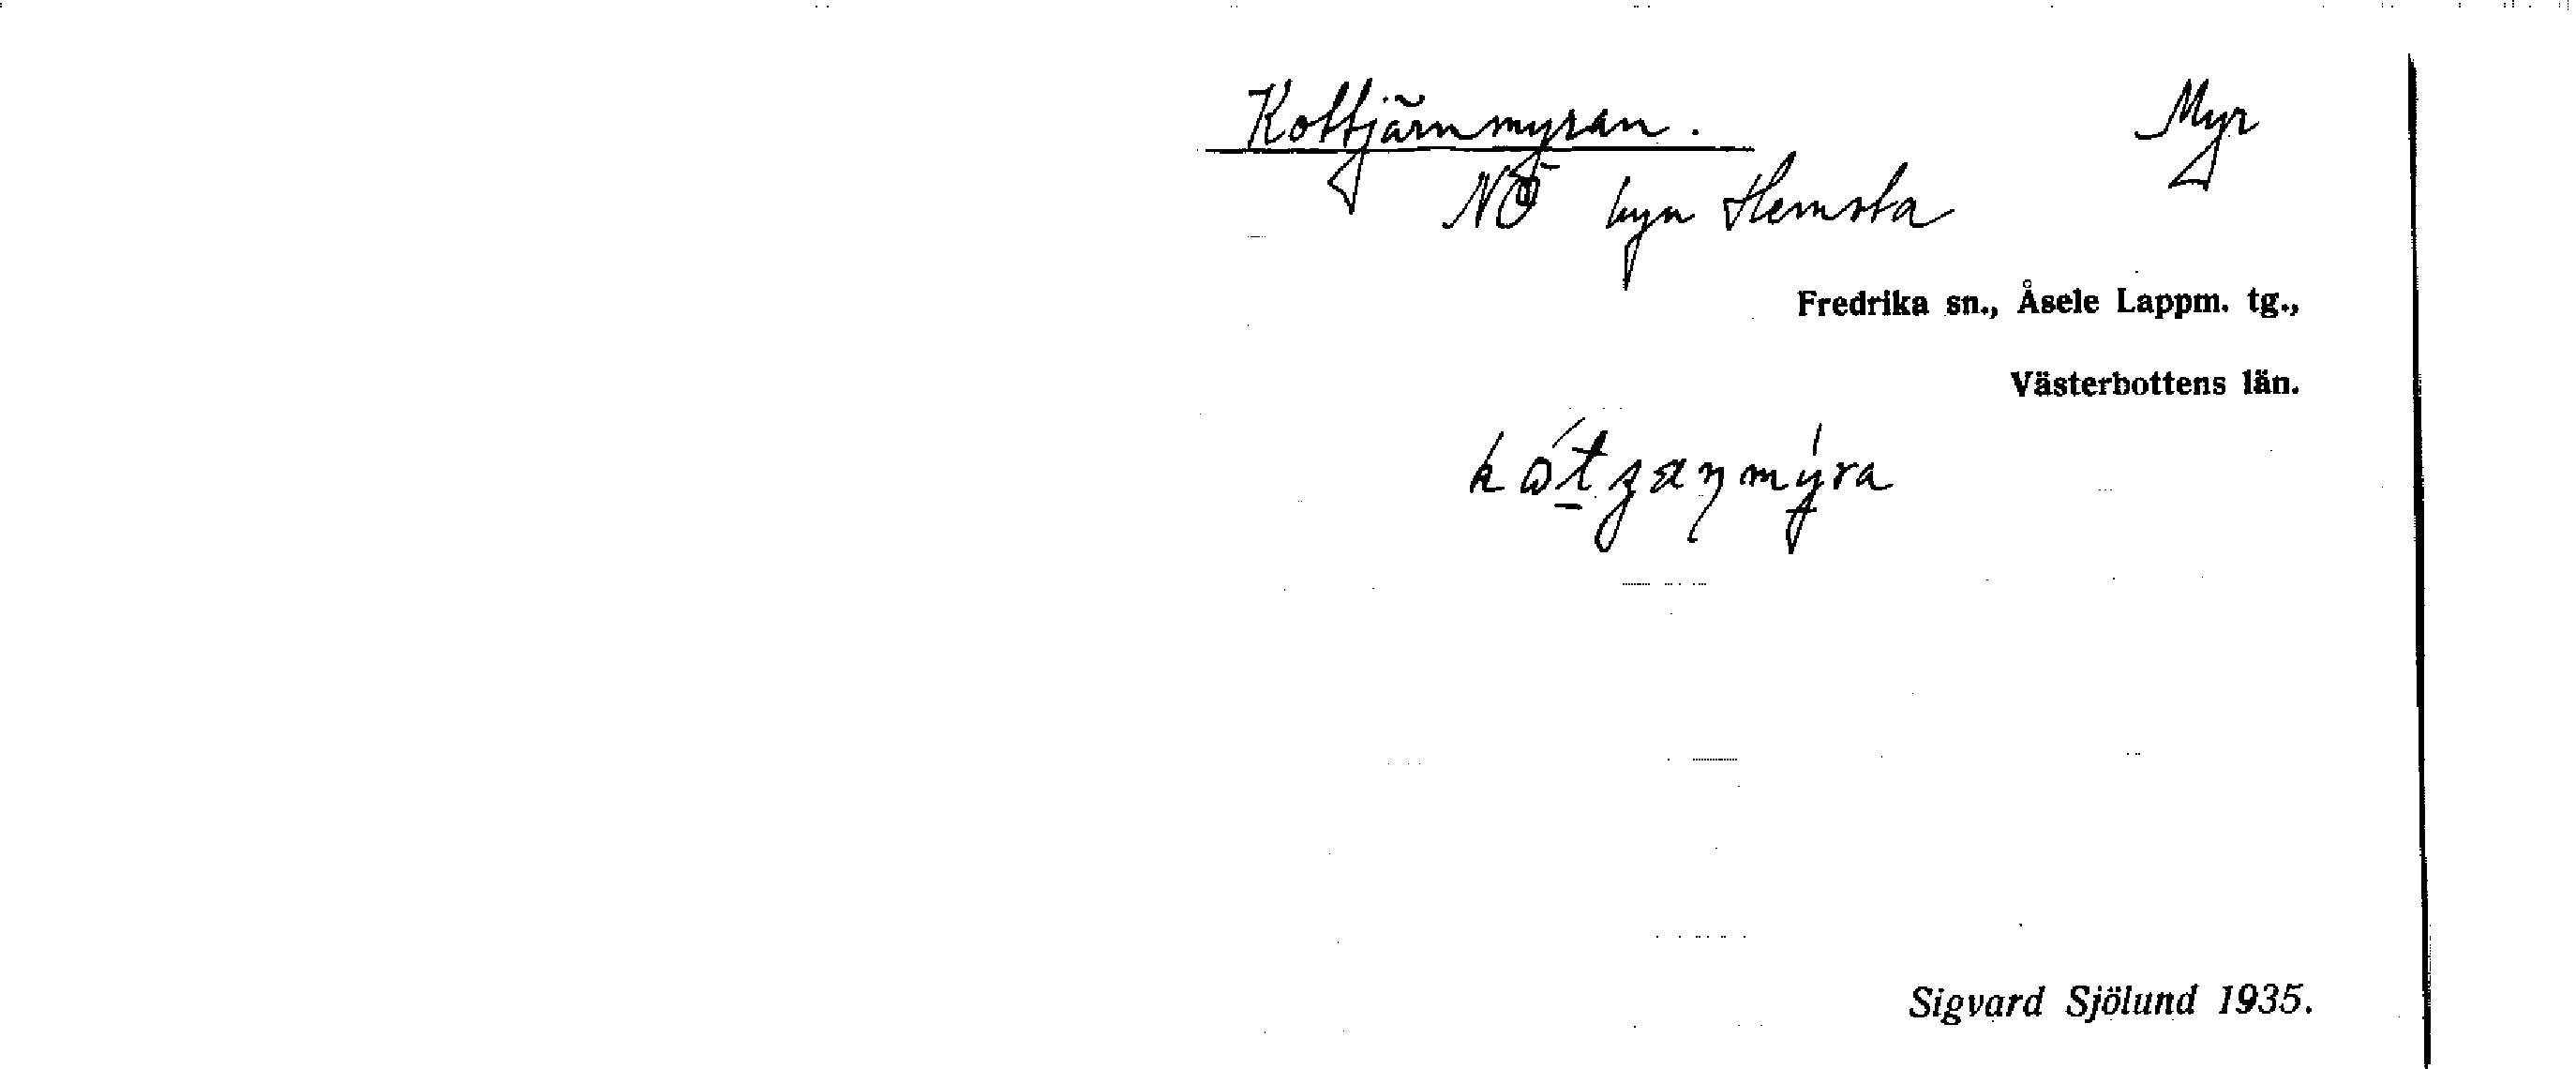 Kottjärnmyran. Myr
NÖ byn Hemsta
Fredrika sn., Åsele Lappm. tg.,
Västerbottens län.
Sigvard Sjölund 1935.